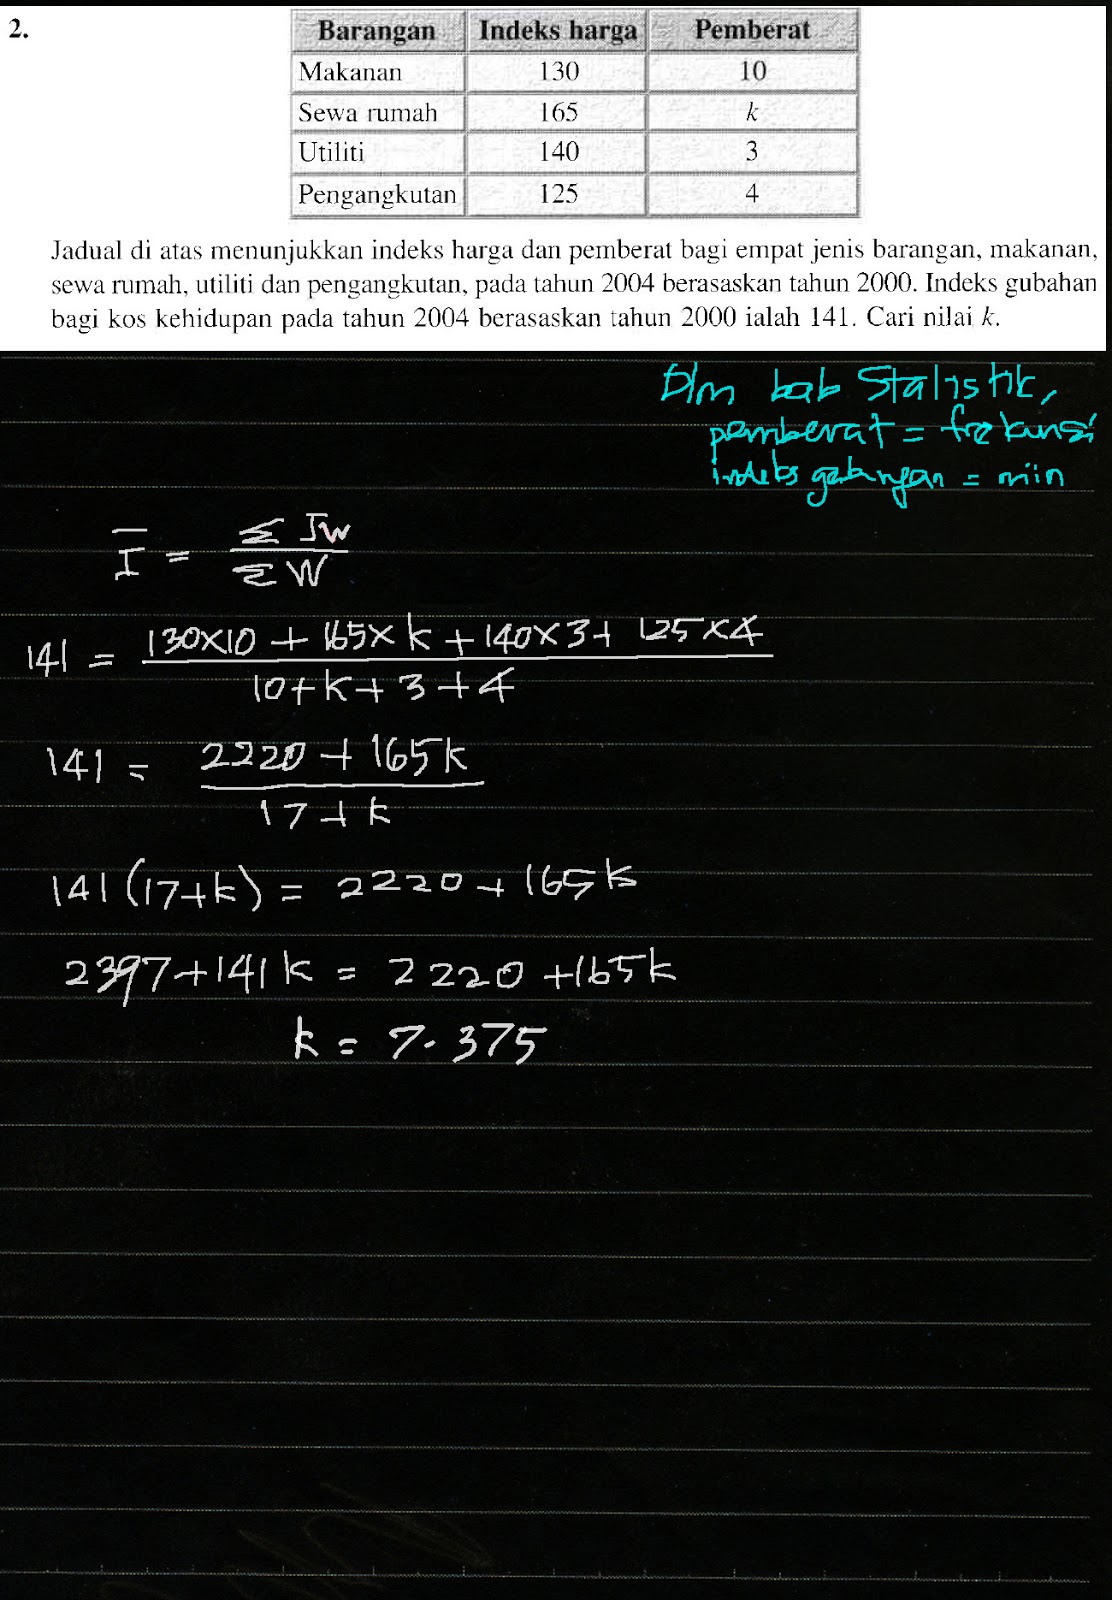 2.
Barangan Indeks harga Pemberat
Makanan 130 10
Sewa rumah 165 k
Utiliti 140 3
Pengangkutan 125 4
Jadual di atas menunjukkan indeks harga dan pemberat bagi empat jenis barangan, makanan,
sewa rumah, utiliti dan pengangkutan, pada tahun 2004 berasaskan tahun 2000. Indeks gubahan
bagi kos kehidupan pada tahun 2004 berasaskan tahun 2000 ialah 141. Cari nilai k.
Dlm bab Statistik,
pemberat = frekunsi
indeks gabungan = min
Ī = Σ IW / Σ W
141 = 130×10 + 165×k + 140×3 + 125×4 / 10+k+3+4
141 = 2220 + 165k / 17+k
141(17+k) = 2220 + 165k
2397+141k = 2220+165k
k = 7.375